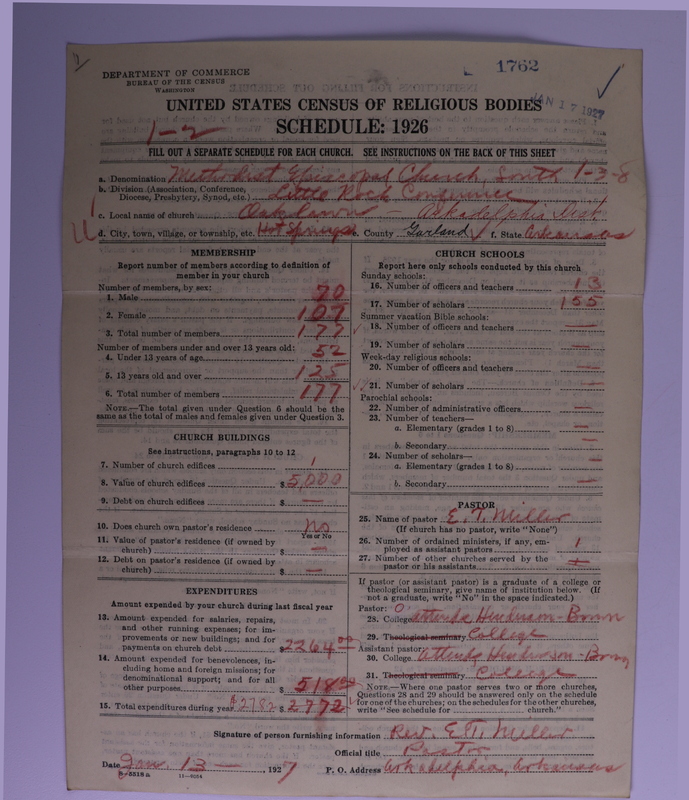 1762
DEPARTMENT OF COMMERCE
BUREAU OF THE CENSUS
WASHINGTON
JAN 17 1927
UNITED STATES CENSUS OF RELIGIOUS BODIES
SCHEDULE: 1926
1-2
FILL OUT A SEPARATE SCHEDULE FOR EACH CHURCH. SEE INSTRUCTIONS ON THE BACK OF THIS SHEET
a. Denomination Methodist Episcopal Church, South 1-3-8
b. Division (Association, Conference, Diocese, Presbytery, Synod, etc.) Little Rock Conference
c. Local name of church Oaklawn - Arkadelphia Dist.
d. City, town, village, or township, etc. Hot Springs e. County Garland f. State Arkansas
MEMBERSHIP
Report number of members according to definition of
member in your church
Number of members, by sex:
1. Male 70
2. Female 107
3. Total number of members 177
Number of members under and over 13 years old:
4. Under 13 years of age 52
5. 13 years old and over 125
6. Total number of members 177
NOTE.—The total given under Question 6 should be the
same as the total of males and females given under Question 3.
CHURCH BUILDINGS
See instructions, paragraphs 10 to 12
7. Number of church edifices 1
8. Value of church edifices $ 5,000
9. Debt on church edifices $ —
10. Does church own pastor's residence No
Yes or No
11. Value of pastor's residence (if owned by
church) $ —
12. Debt on pastor's residence (if owned by
church) $ —
EXPENDITURES
Amount expended by your church during last fiscal year
13. Amount expended for salaries, repairs,
and other running expenses; for im-
provements or new buildings; and for
payments on church debt $2264.00
14. Amount expended for benevolences, in-
cluding home and foreign missions; for
denominational support; and for all
other purposes $ 518
15. Total expenditures during year $2782 $ 2772
CHURCH SCHOOLS
Report here only schools conducted by this church
Sunday schools:
16. Number of officers and teachers 13
17. Number of scholars 155
Summer vacation Bible schools:
18. Number of officers and teachers —
19. Number of scholars —
Week-day religious schools:
20. Number of officers and teachers —
21. Number of scholars —
Parochial schools:
22. Number of administrative officers —
23. Number of teachers—
a. Elementary (grades 1 to 8) —
b. Secondary —
24. Number of scholars—
a. Elementary (grades 1 to 8) —
b. Secondary —
PASTOR
25. Name of pastor E. T. Miller
(If church has no pastor, write "None")
26. Number of ordained ministers, if any, em-
ployed as assistant pastors 1
27. Number of other churches served by the
pastor or his assistants
If pastor (or assistant pastor) is a graduate of a college or
theological seminary, give name of institution below. (If
not a graduate, write "No" in the space indicated.)
Pastor: 0
28. College attends Henderson-Brown
29. Theological seminary College
Assistant pastor:
30. College attends Henderson-Brown
31. Theological seminary College
NOTE.—Where one pastor serves two or more churches,
Questions 28 and 29 should be answered only on the schedule
for one of the churches; on the schedules for the other churches,
write "See schedule for church."
Signature of person furnishing information Rev. E. T. Miller
Official title Pastor
Date Jan. 13 —, 1927 P. O. Address Arkadelphia, Arkansas
8-5518a 11-9084